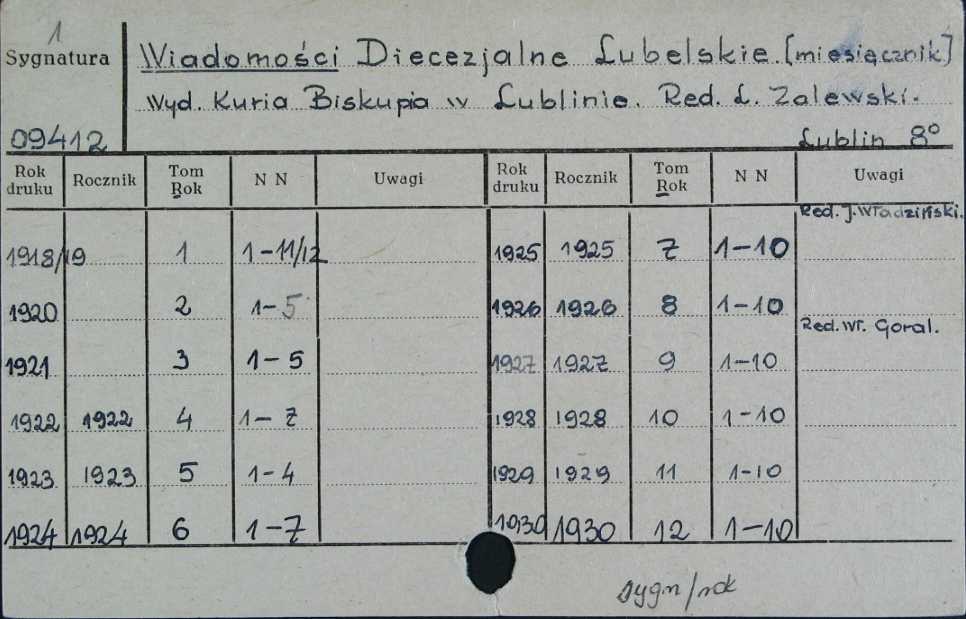 1
Sygnatura Wiadomości Diecezjalne Lubelskie. [miesięcznik]
Wyd. Kuria Biskupia w Lublinie. Red. L. Zalewski.
09412 Lublin 8°
Rok druku Rocznik Tom Rok N N Uwagi Rok druku Rocznik Tom Rok N N Uwagi
Red. J. Władziński.
1918/19 1 1-11/12 1925 1925 7 1-10
1920 2 1-5 1926 1926 8 1-10
Red. Wł. Goral.
1921 3 1-5 1927 1927 9 1-10
1922 1922 4 1-7 1928 1928 10 1-10
1923 1923 5 1-4 1929 1929 11 1-10
1924 1924 6 1-7 1930 1930 12 1-10
sygn/rok